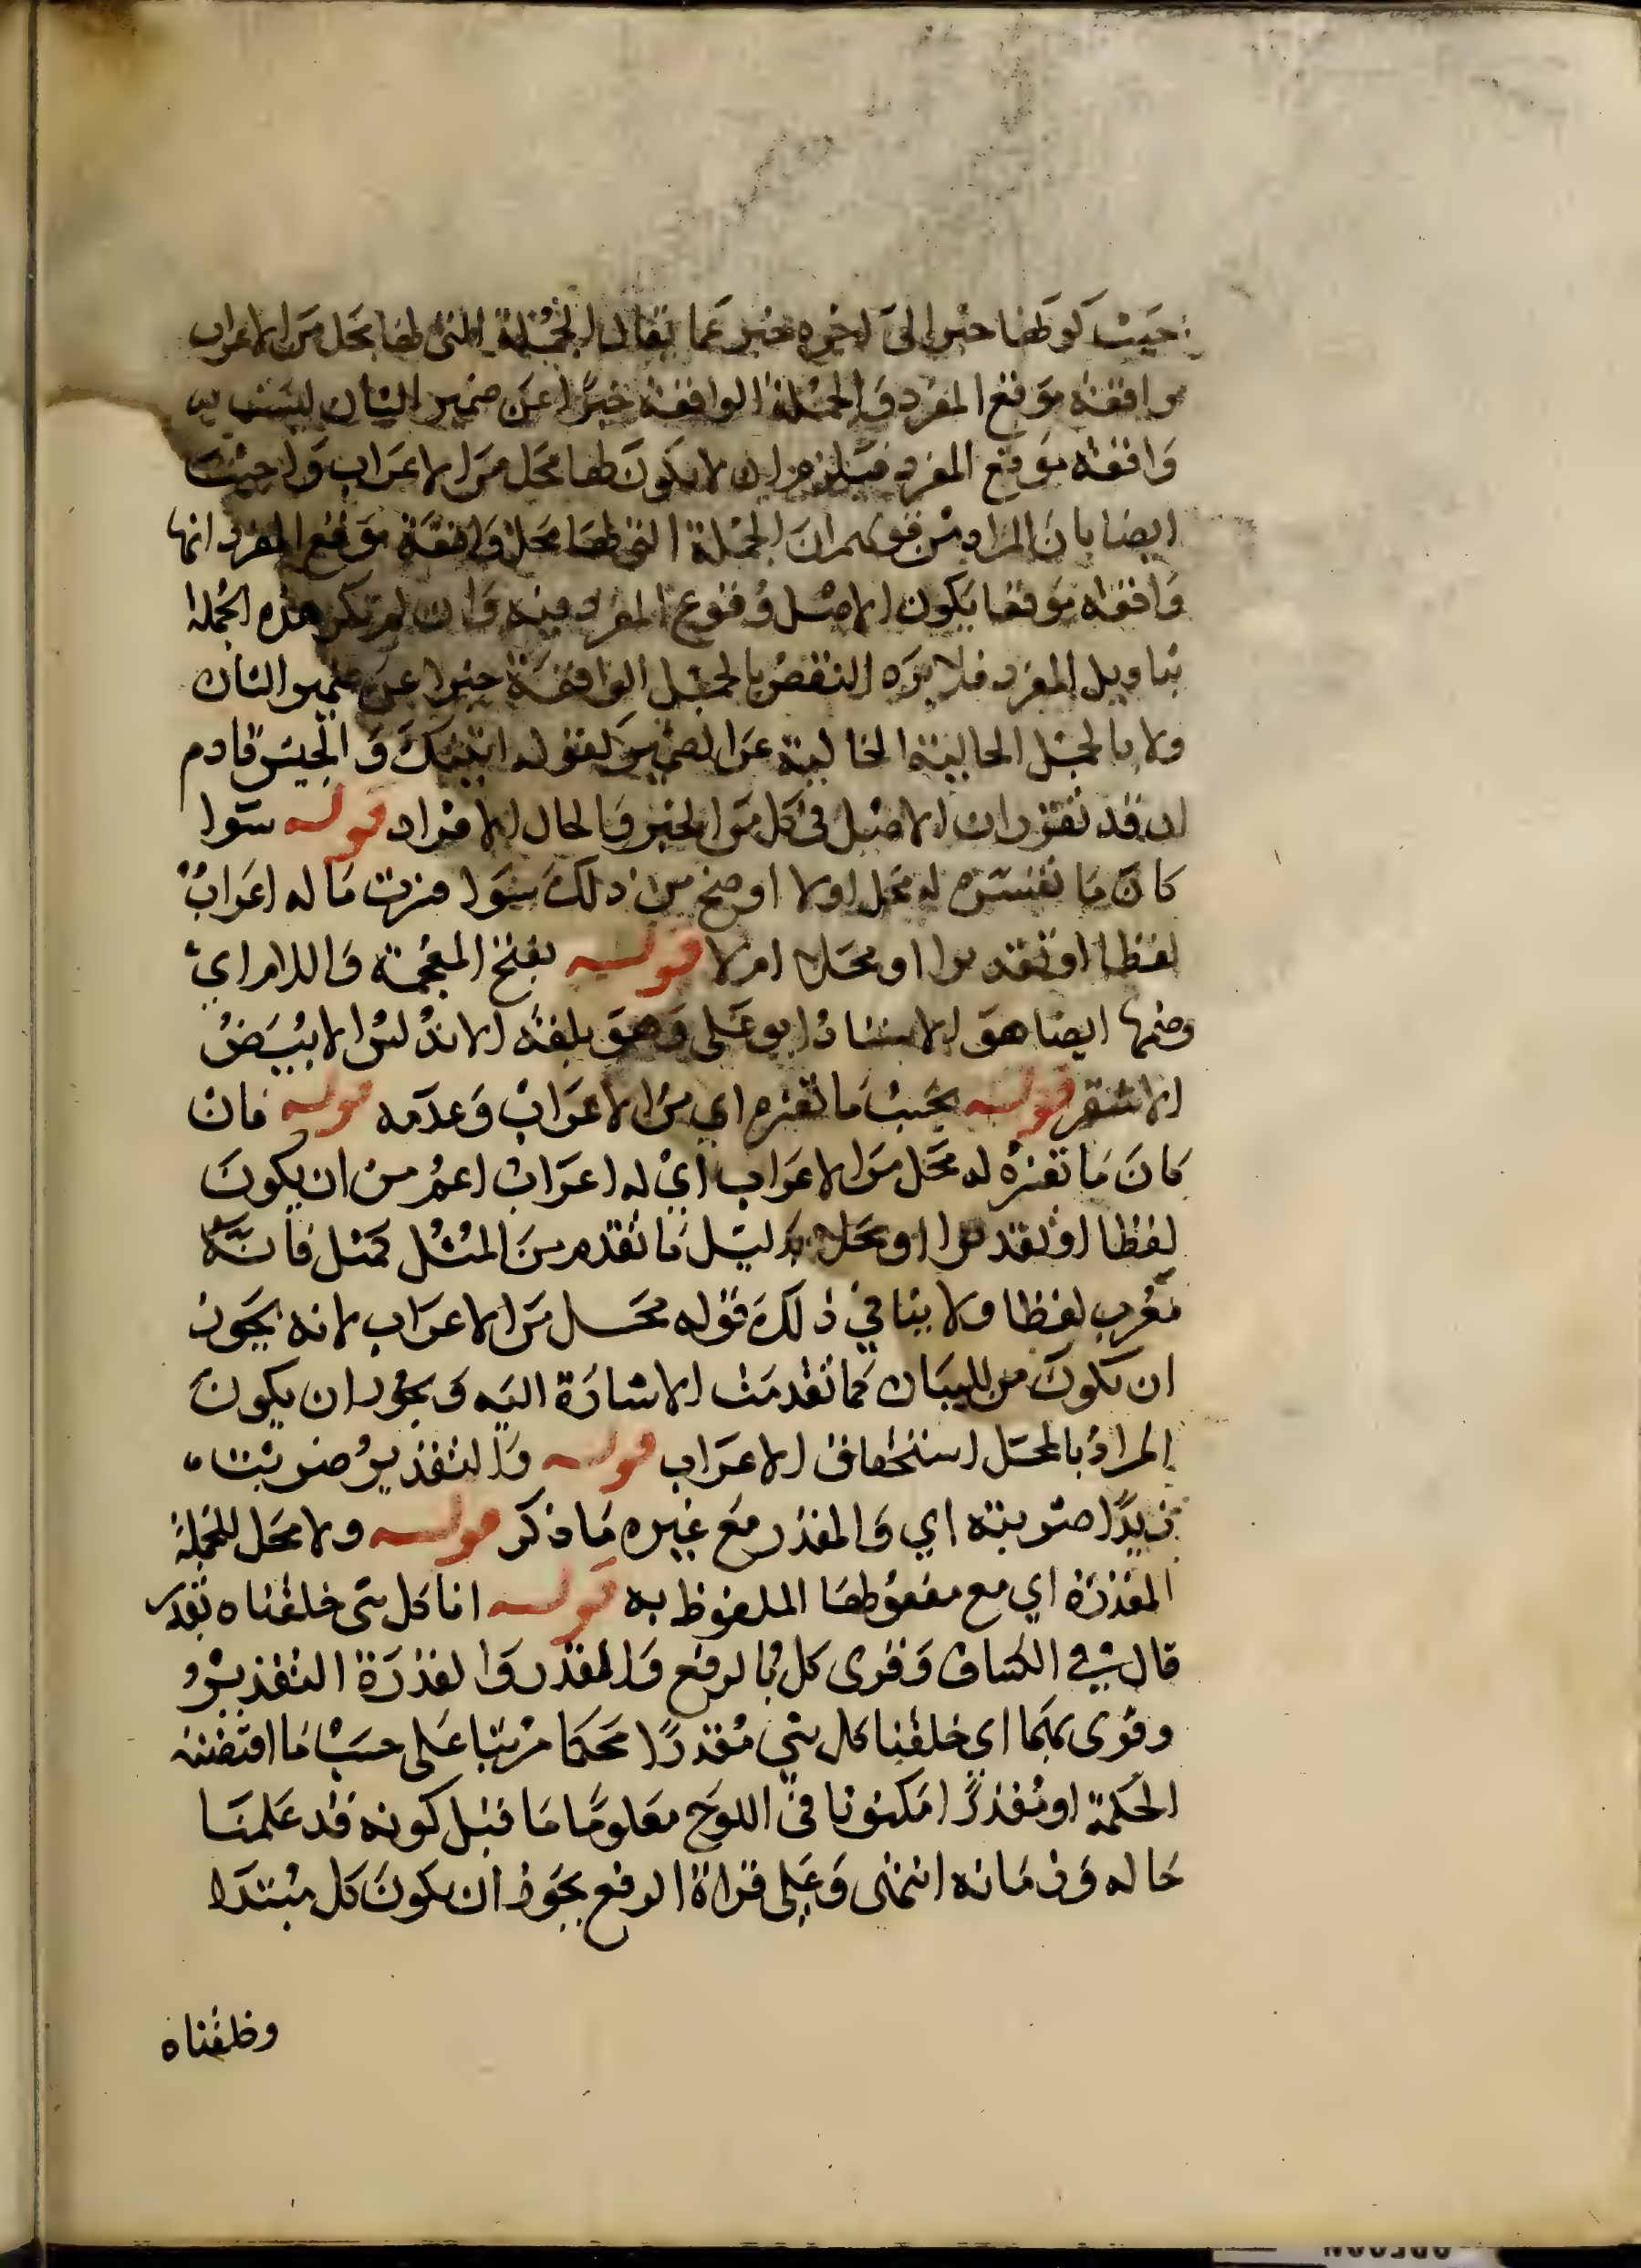 حيث كونها خبرا الى اخره خبر عما يقال الجملة التي لها محل من الاعراب
واقعة موقع المفرد والجملة الواقعة خبرا عن ضمير الشان ليست
واقعة موقع المفرد فيلزم ان لا يكون لها محل من الاعراب واجيب
ايضا بان المراد من قولهم ان الجملة التي لها محل واقعة موقع المفرد انها
واقعة موقعا يكون الاصل وقوع المفرد فيه وان لم تكن هذه الجملة
بتاويل المفرد فلا يرد النقض بالجمل الواقعة خبرا عن ضمير الشان
ولا بالجمل الحالية الخالية عن الضمير كقوله اتيتك والجيش قادم
اذ قد تقرر ان الاصل في كل من الخبر والحال الافراد قوله سوا
كان ما تفسره له محل اولا اوضح من ذلك سوا فسرت ما له اعراب
لفظا او تقديرا او محلا ام لا قوله بفتح المعجمة واللام اي
وضمها ايضا هو الاستاذ ابو علي وهو بلغة الاندلس الابيض
الاشقر قوله بحسب ما تفسره اي من الاعراب وعدمه قوله فان
كان ما تفسره له محل من الاعراب اي له اعراب اعم من ان يكون
لفظا او تقديرا او محلا بدليل ما تقدم من المثل كمثل فانه
معرب لفظا ولا ينافي ذلك قوله محل من الاعراب لانه يجوز
ان تكون من للبيان كما تقدمت الاشارة اليه ويجوز ان يكون
المراد بالمحل استحقاق الاعراب قوله والتقدير ضربت
زيدا ضربته اي والمقدر مع غيره ما ذكر قوله ولا محل للجملة
المقدرة اي مع مفعولها الملفوظ به قوله انا كل شي خلقناه بقدر
قال في الكشاف وقرى كل بالرفع والقدر والقدرة التقدير
وقرى بهما اي خلقنا كل شي مقدرا محكما مرتبا على حسب ما اقتضته
الحكمة او مقدرا مكتوبا في اللوح معلوما ما قبل كونه قد علمنا
حاله وزمانه انتهى وعلى قراة الرفع يجوز ان يكون كل مبتدا
وخلقناه